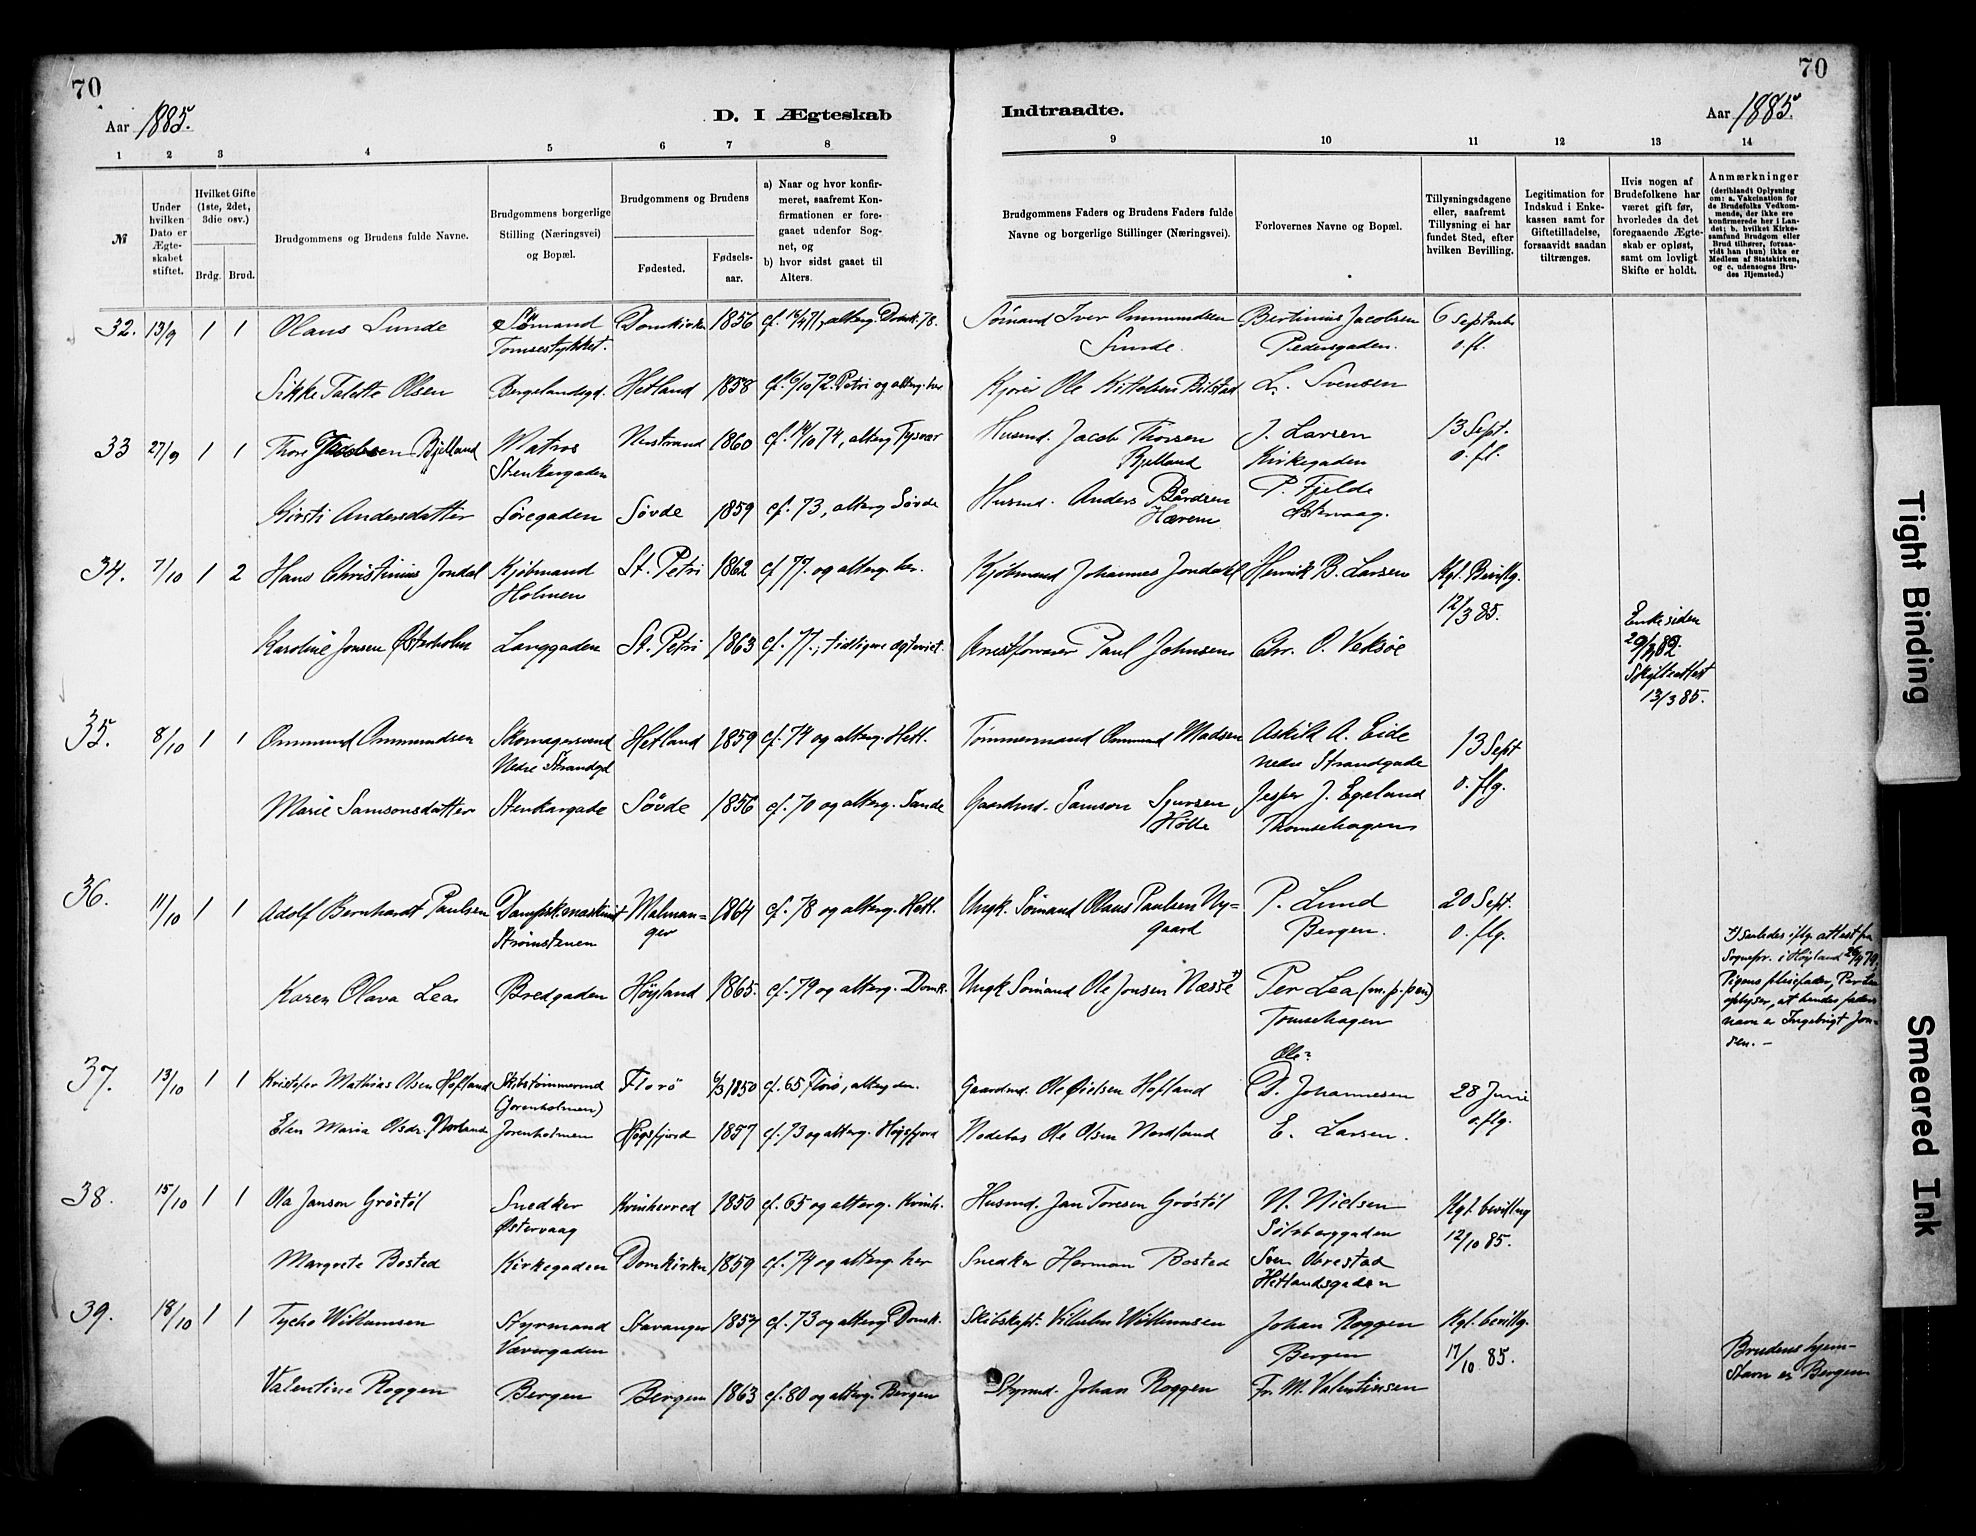 70
70
Aar 1885.
D. I Ægteskab
Indtraadte.
Aar 1885.
1 2 3 4 5 6 7 8 9 10 11 12 13 14
№
Under hvilken Dato er Ægteskabet stiftet.
Hvilket Gifte (1ste, 2det, 3die osv.)
Brdg. Brud.
Brudgommens og Brudens fulde Navne.
Brudgommens borgerlige Stilling (Næringsvei) og Bopæl.
Brudgommens og Brudens
Fødested.
Fødselsaar.
a) Naar og hvor konfirmeret, saafremt Konfirmationen er foregaaet udenfor Sognet, og
b) hvor sidst gaaet til Alters.
Brudgommens Faders og Brudens Faders fulde Navne og borgerlige Stillinger (Næringsvei).
Forlovernes Navne og Bopæl.
Tillysningsdagene eller, saafremt Tillysning ei har fundet Sted, efter hvilken Bevilling.
Legitimation for Indskud i Enkekassen samt for Giftetilladelse, forsaavidt saadan tiltrænges.
Hvis nogen af Brudefolkene har været gift før, hvorledes da det foregaaende Ægteskab er opløst, samt om lovligt Skifte er holdt.
Anmærkninger
(deriblandt Oplysning om: a. Vakcination for de Brudefolks Vedkommende, der ikke ere konfirmerede her i Landet; b. hvilket Kirkesamfund Brudgom eller Brud tilhører, forsaavidt han (hun) ikke er Medlem af Statskirken, og c. udensogns Brudes Hjemsted.)
32. 13/9 1 1 Olaus Sunde Sømand Domkirken 1856 cf. 71, alterg. Domk. 78. Sømand Iver Ommundsen Bertinius Jacobsen 6 September
Tomsestykket. Sunde. Pedersgaden. o. fl.
Sikke Talette Olsen Bergelandsgd. Hetland 1858 cf. 6/10 72. Petri og alterg. her Ole Kittelsen Bilstad L. Svensen
33 27/9 1 1 Thore Jacobsen Bjelland Matros Nerstrand 1860 cf. 74, alterg. Tysvær Husmd. Jacob Thorsen J. Larsen 13 Sept.
Stenkargaden Bjelland Kirkegaden o. fl.
Kirsti Andersdatter Søregaden Søvde 1859 cf. 73, alterg. Søvde Husmd. Anders Bårdsen P. Fjelde
Hærem Østervaag.
34. 7/10 1 2 Hans Christinius Jondal Kjøbmand St. Petri 1862 cf 77. og alterg. her. Kjøbmand Johannes Jondahl Henrik B. Larsen Kgl. Bevillg.
Holmen 12/3 85.
Karoline Jonsen Østerholm Langgaden St. Petri 1863 cf. 77., tidligere Paul Johnsen Chr. O. Veksøe
Enke siden
82.
Skifteattest
13/3 85.
35. 8/10 1 1 Ommund Ommundsen Skomagersvend Hetland 1859 cf. 74 og alterg. Hetl. Tømmermand Ommund Madsen Askild A. Eide 13 Sept
Nedre Strandgd nedre Strandgade o. flg.
Marie Samsonsdatter Stenkargade Søvde 1856 cf. 70 og alterg. Sande Gaardmd. Samson Sjursen Jesper J. Egeland
Thomsehagen
36. 11/10 1 1 Adolf Bernhardt Paulsen Dampsk.maskinist Malman- 1864 cf. 78 og alterg. Hetl. Ungk. Sømand Olaus Paulsen Ny- P. Lund 20 Sept.
Strømstenen ger gaard Bergen. o. flg.
Karen Olava Lea Bredgaden Høyland 1865. cf. 79 og alterg. Domk. Ungk Sømand Ole Jonsen Næsse Per Lea (m. p. pen)
Tomsehagen
Saaledes iflg. attest fra
Sognepr. i Høyland
Pigens pleiefader, Per Lea
oplyser, at hendes faders
navn er Ingebrigt Jon-
sen. —
37. 13/10 1 1 Kristofer Mathias Olsen Hofland Skibstømmermd Florø 6/3 1850 cf. 65 Florø, Gaardmd. Ole Hofland Johannesen 28 Juni
(Jorenholmen) o. flg.
Elen Maria Olsdr. Norland Jorenholmen Høgsfjord 1857 cf. 73 og alterg. Høgsfjord Ole Olsen Nordland E. Larsen.
38. 15/10 1 1 Ola Janson Grøstøl Snedker Kvinherred 1850 cf. 65 og alterg. Kvinh. Husmd. Jan Toresen Grøstøl N. Nielsen Kgl. bevillng
Østervaag Sølvberggaden 12/10 85.
Margrete Bosted Kirkegaden Domkirken 1859 cf. 74 og alterg. her Snedker Herman Bosted Sven Obrestad
Hetlandsgaden
39. 18/10 1 1 Tycho Wilhumsen Styrmand Stavanger 1857 cf. 73 og alterg. Domk. Skibskapt. Vilhelm Wilhumsen Johan Roggen Kgl. bevillg.
Vævergaden Bergen 17/10 85.
Valentine Roggen Bergen Bergen 1863 cf. 80 og alterg. Bergen Styrmd. Johan Roggen Fr. M. Valentinsen
Brudens hjem-
stavn er Bergen
Tight Binding
Smeared Ink